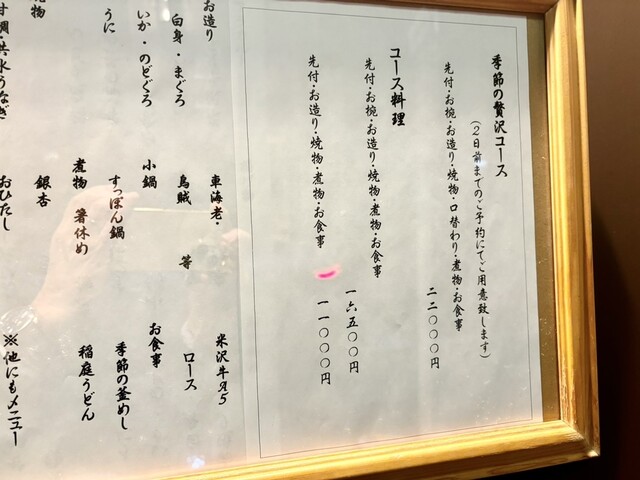 季節の贅沢コース
(2日前までのご予約にてご用意致します)
先付・お椀・お造り・焼物・口替わり・煮物・お食事
二二〇〇〇円
コース料理
先付・お椀・お造り・焼物・煮物・お食事
一六五〇〇円
先付・お造り・焼物・煮物・お食事
一一〇〇〇円
お造り
白身・まぐろ
いか・のどぐろ
うに
車海老・
烏賊 等
小鍋
すっぽん鍋
煮物 箸休め
銀杏
おひたし
米沢牛A5
ロース
お食事
季節の釜めし
稲庭うどん
※他にもメニュー